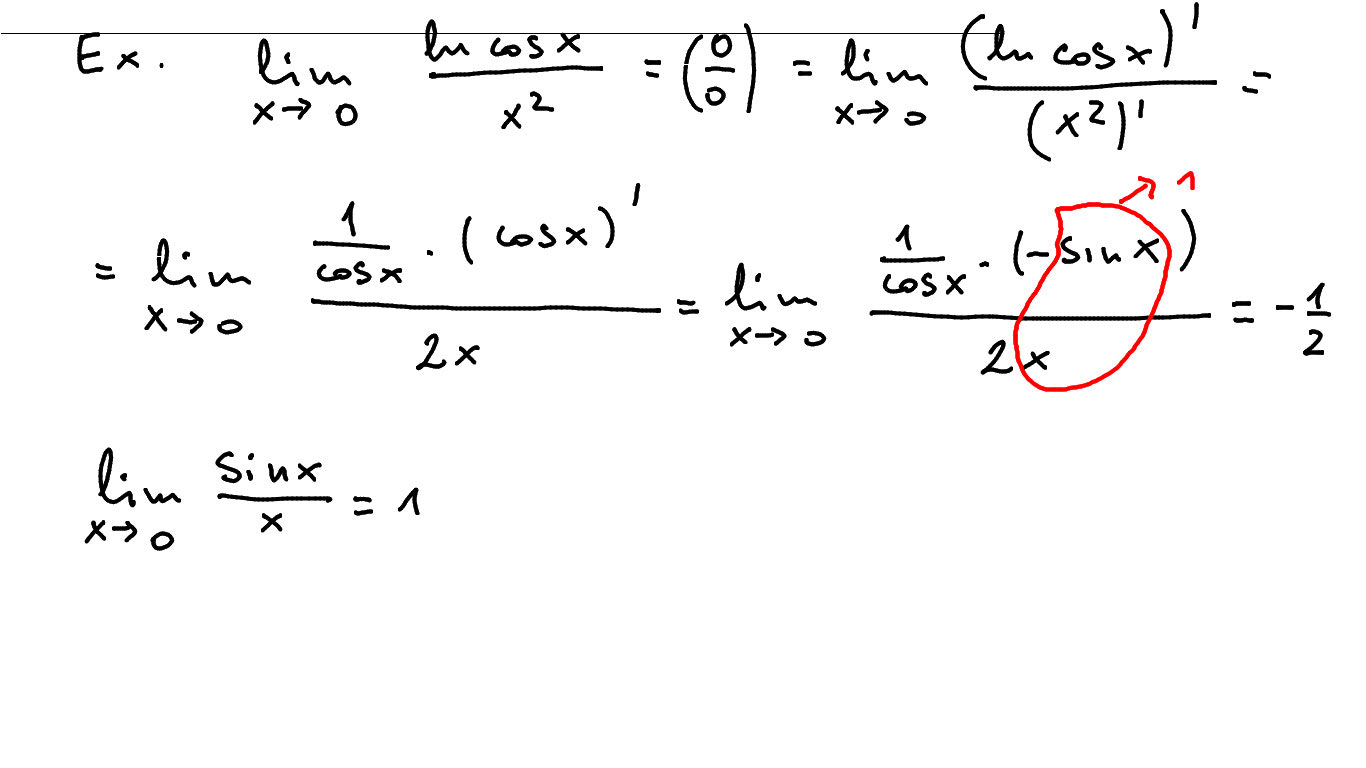 Ex. lim x→0 ln cos x / x² = (0/0) = lim x→0 (ln cos x)' / (x²)' =
= lim x→0 1/cos x · (cos x)' / 2x = lim x→0 1/cos x · (- sin x) / 2x = - 1/2
→ 1
lim x→0 sin x / x = 1